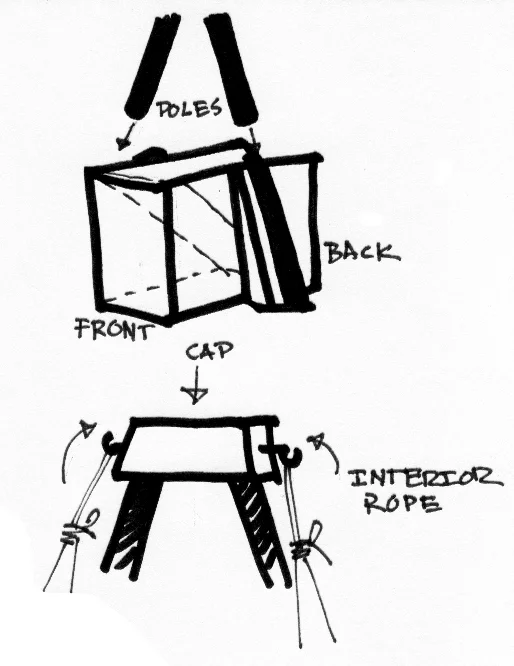 POLES
BACK
FRONT
CAP
INTERIOR
ROPE